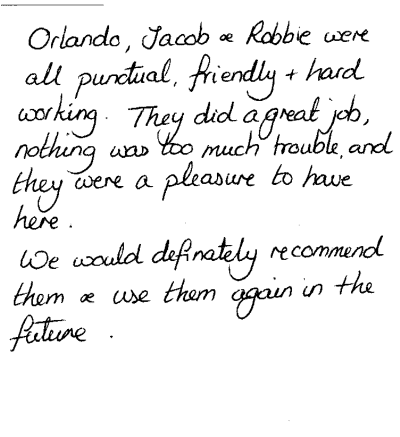 Orlando, Jacob & Robbie were
all punctual, friendly + hard
working. They did a great job,
nothing was too much trouble, and
they were a pleasure to have
here.
We would definately recommend
them & use them again in the
future.